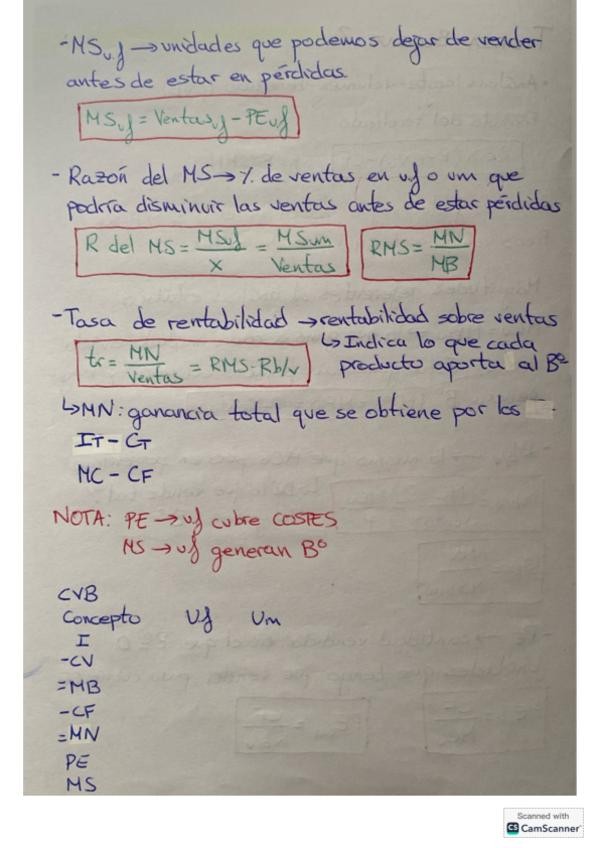 - MSuf → unidades que podemos dejar de vender
antes de estar en pérdidas.
MSuf = Ventasuf - PEuf
- Razón del MS → % de ventas en uf o um que
podría disminuir las ventas antes de estar pérdidas
R del MS = MSuf / X = MSum / Ventas   RMS = MN / MB
- Tasa de rentabilidad → rentabilidad sobre ventas
↳ Indica lo que cada
tr = MN / Ventas = RMS · Rb/v   producto aporta al Bº
↳ MN: ganancia total que se obtiene por los
IT - CT
MC - CF
NOTA: PE → uf cubre COSTES
MS → uf generan Bº
CVB
Concepto Uf Um
I
-CV
=MB
-CF
=MN
PE
MS
Scanned with
CS CamScanner